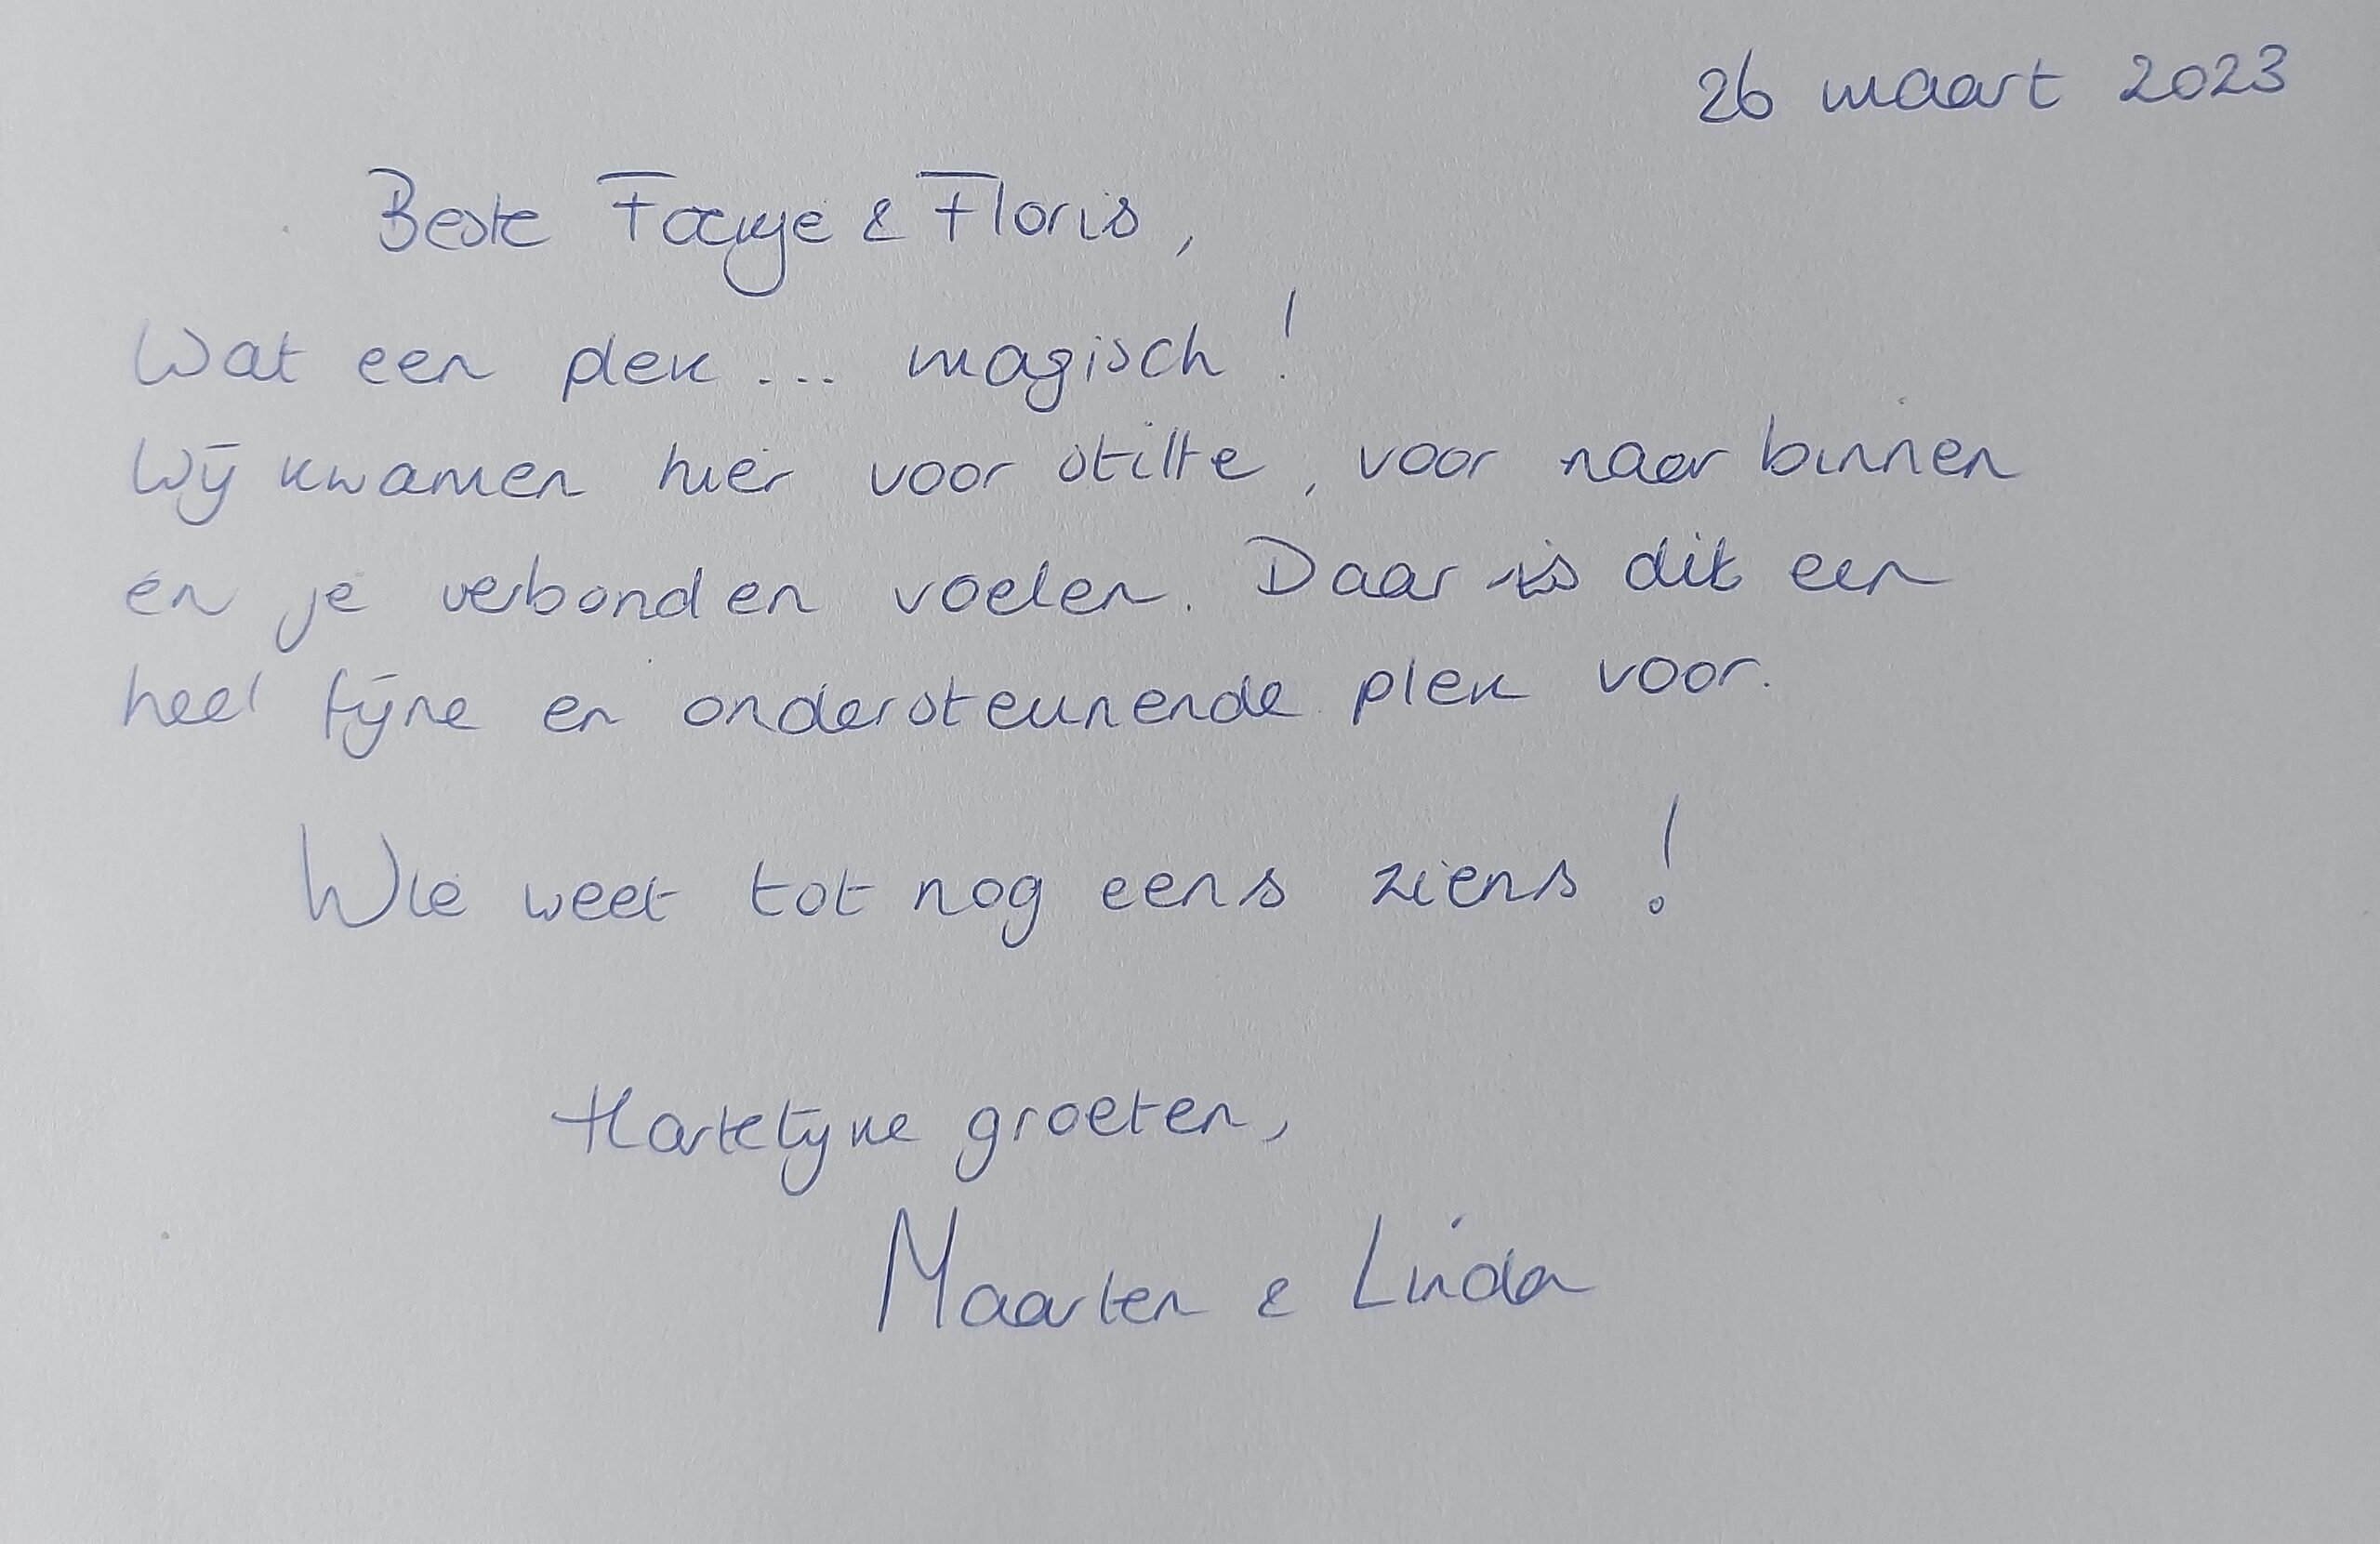 26 maart 2023
Beste & Floris,
Wat een plek ... magisch!
Wij kwamen hier voor stilte, voor naar binnen
en je verbonden voelen. Daar is dit een
heel fijne en ondersteunende plek voor.
Wie weet tot nog eens ziens!
Hartelijke groeten,
Maarten & Linda